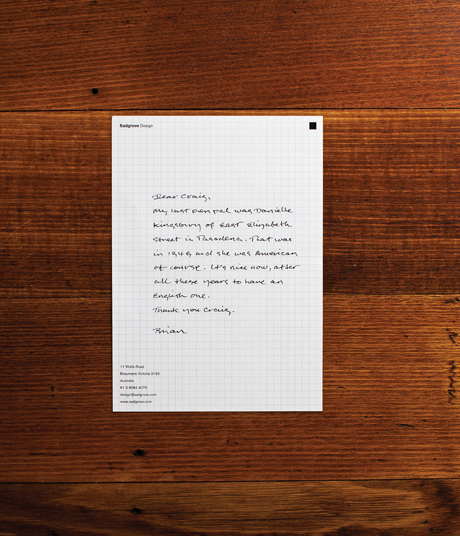 Sadgrove Design
Dear Craig,
My last pen pal was Danielle
Kingsbury of East Elizabeth
Street in Pasadena. That was
in 1949, and she was American
of course. It's nice now, after
all these years to have an
English one.
Thank you Craig.
Brian
17 Wells Road
Beaumaris Victoria 3193
Australia
design@sadgrove.com
www.sadgrove.com